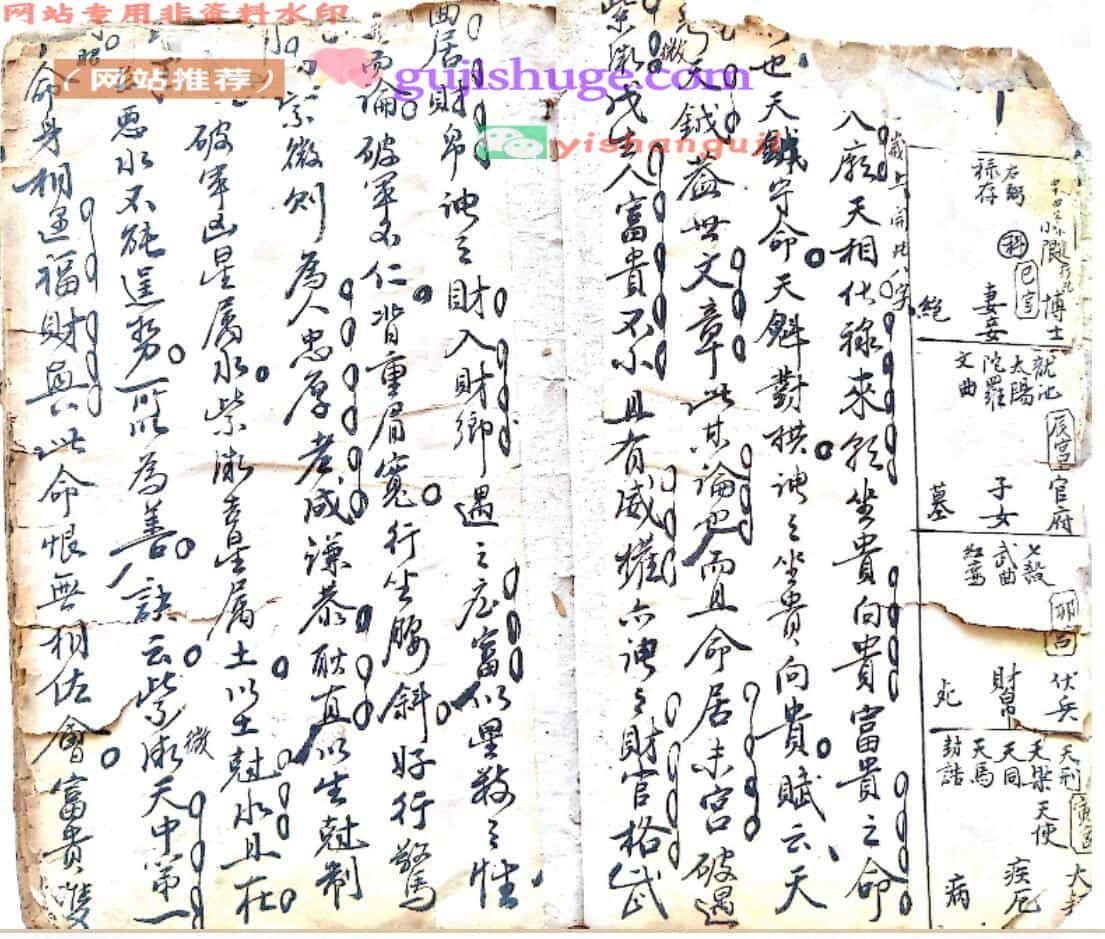 网站专用非资料水印
(网站推荐)
gujishuge.com
yishanguji
右弼
禄存
科
巳宮
小限
博士
妻妾
絶
龍池
太陽
陀羅
文曲
辰宮
官府
子女
墓
七殺
武曲
紅鸞
卯宮
伏兵
財帛
死
天刑
天樂
天同
天馬
封誥
天使
寅宮
疾厄
病
八廟天相化祿來躬坐貴向貴富貴之命
也天鉞守命天魁對拱謂之坐貴向貴賦云天
天鉞蓋世文章此其論也而且命居未宮破遇
紫微戊生人富貴不小且有威權亦謂之財官格武
曲居財帛謂之財入財鄉遇之應富似星殺之性
而論破軍不仁背重眉寬行坐腰斜好行驚
紫微則為人忠厚老成謙恭耿直以生尅制
破軍凶星屬水紫微吉星屬土以土尅水且在
惡水不能逞勢所以為善訣云紫微天中第一
命身相逢福財興此命恨無相佐會富貴雙